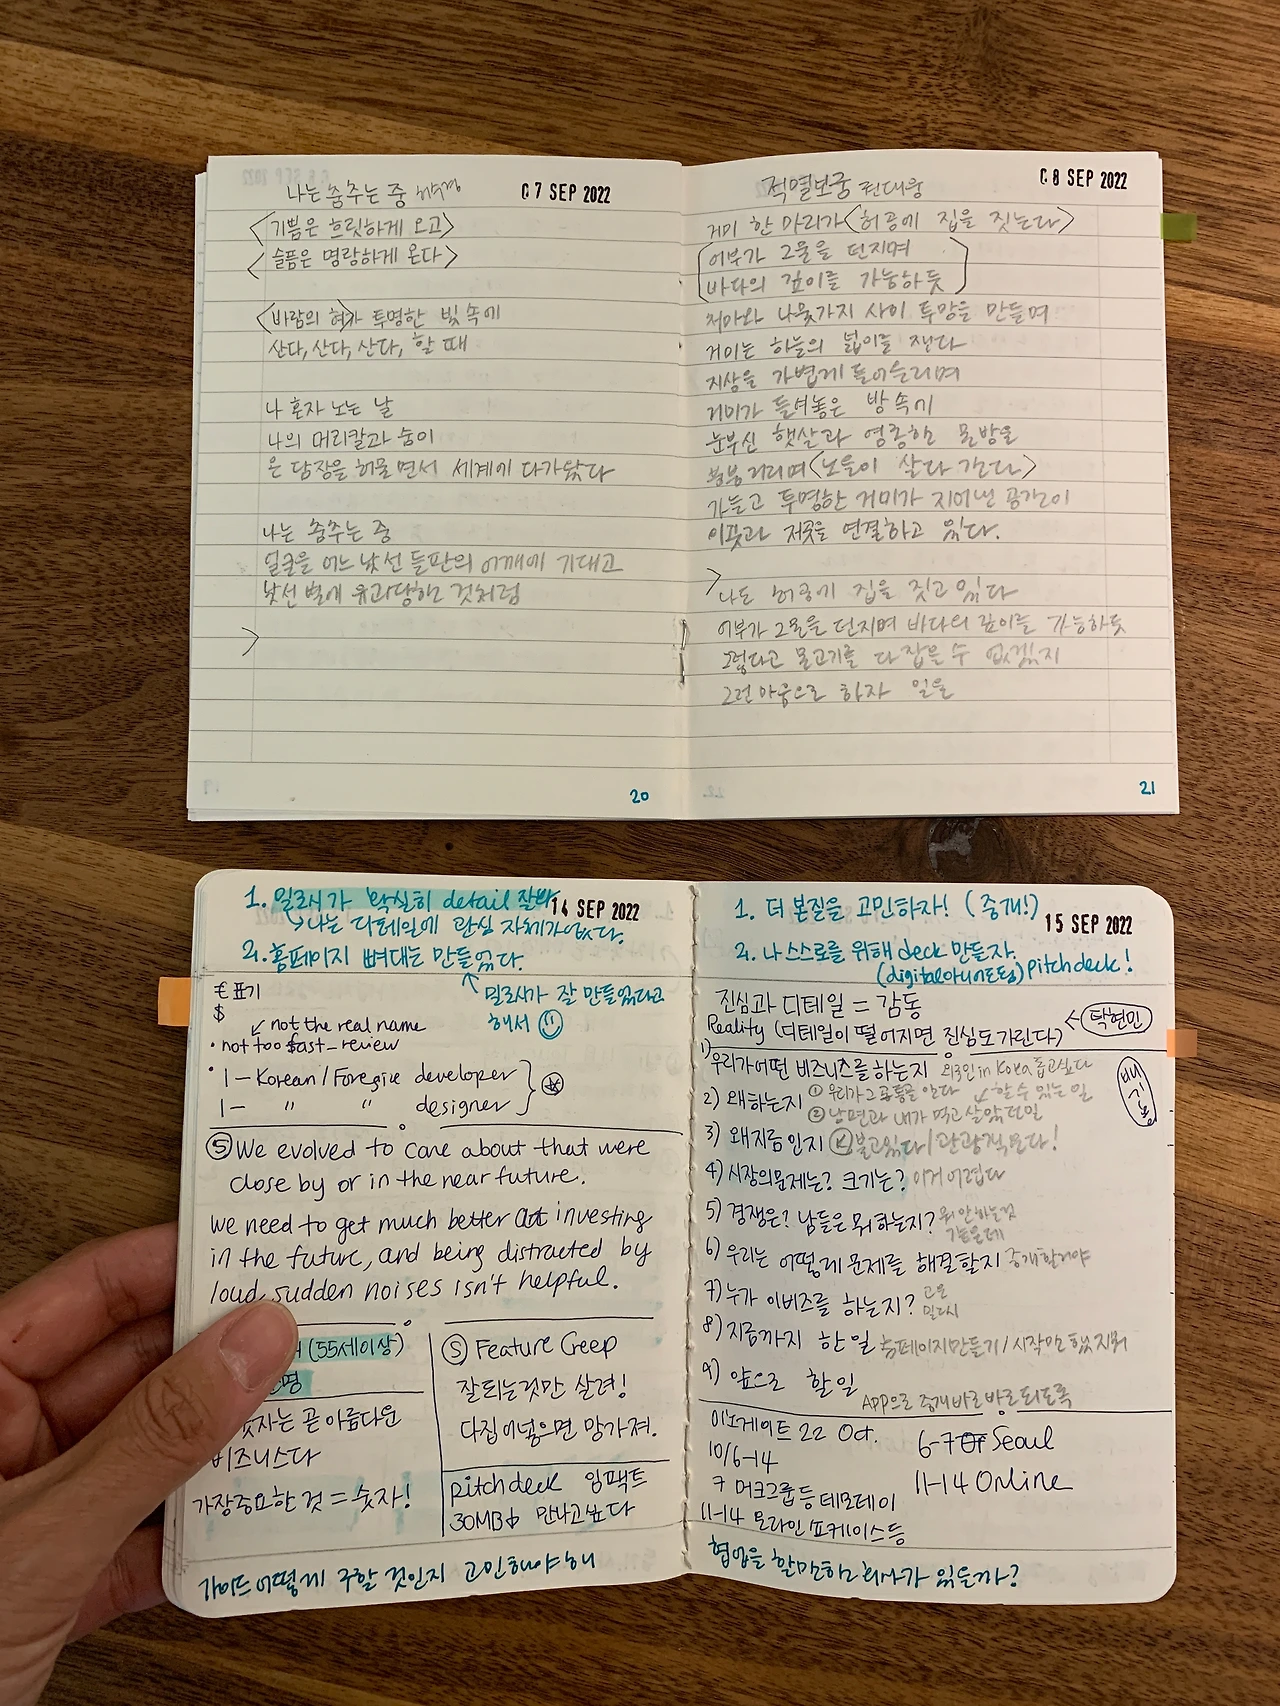 나는 춤추는 중 허수경
07 SEP 2022
<기쁨은 흐릿하게 오고>
<슬픔은 명랑하게 온다>
<바람의 혀>가 투명한 빛 속에
산다, 산다, 산다, 할 때
나 혼자 노는 날
나의 머리칼과 숨이
온 담장을 허물면서 세계에 다가왔다
나는 춤추는 중
얼굴을 어느 낯선 들판의 어깨에 기대고
낯선 별에 유괴당한 것처럼
>
20
적멸보궁 전대웅
08 SEP 2022
거미 한 마리가 <허공에 집을 짓는다>
[어부가 그물을 던지며
바다의 깊이를 가늠하듯]
처마와 나뭇가지 사이 투망을 만들며
거미는 하늘의 넓이를 잰다
지상을 가볍게 들어올리며
거미가 들여놓은 방 속에
눈부신 햇살과 영롱한 물방울
붕붕거리며 <노을이 살다 간다>
가늘고 투명한 거미가 지어낸 공간이
이곳과 저곳을 연결하고 있다.
> 나도 허공에 집을 짓고 있다
어부가 그물을 던지며 바다의 깊이를 가늠하듯
그렇다고 물고기를 다 잡을 수 없겠지
그런 마음으로 하자 일을
21
1. 밀로시가 확실히 detail 잘봐
14 SEP 2022
↳나는 디테일에 관심 자체가 없다.
2. 홈페이지 뼈대는 만들었다.
↖ 밀로시가 잘 만들었다고
해서
€ 표기
$
↙ not the real name
• not too fast_review
• 1 – Korean / Foregive developer
1 – " " designer
Ⓢ We evolved to care about that were
close by or in the near future.
We need to get much better at investing
in the future, and being distracted by
loud, sudden noises isn't helpful.
(55세이상)
명
숫자는 곧 아름다운
비즈니스다
가장중요한 것 = 숫자!
Ⓢ Feature Creep
잘되는것만 살려!
다집어넣으면 망가져.
pitchdeck 임팩트
30MB↓ 만나고싶다
가이드 어떻게 구할 것인지 고민해야해
1. 더 본질을 고민하자! (중개!)
15 SEP 2022
2. 나 스스로를 위해 deck 만들자.
(digital아니어도됨) pitch deck!
진심과 디테일 = 감동
Reality (디테일이 떨어지면 진심도가린다) ← 탁현민
1) 우리가어떤 비즈니스를 하는지 외국인 in Korea 돕고싶다
2) 왜하는지 ① 우리가 그 고통을 안다 ↙할 수 있는 일
② 남편과 내가 먹고 살았던일
3) 왜지금인지 Ⓚ붐이있다 / 관광객온다!
4) 시장의문제는? 크기는? 이거 어렵다
5) 경쟁은? 남들은 뭐 하는지? 뭐 안하는것
같은데
6) 우리는 어떻게 문제를 해결할지 중개할거야
7) 누가 이비즈를 하는지?
8) 지금까지 한 일 홈페이지만들기 / 시작만 했지뭐
9) 앞으로 할일
App으로 중개 바로바로되도록
이노게이트 22 Oct.
10/6–14
6-7 Seoul
7 머크그룹등 데모데이
11-14 Online
11-14 온라인 쇼케이스등
협업을 할만한 회사가 있을까?